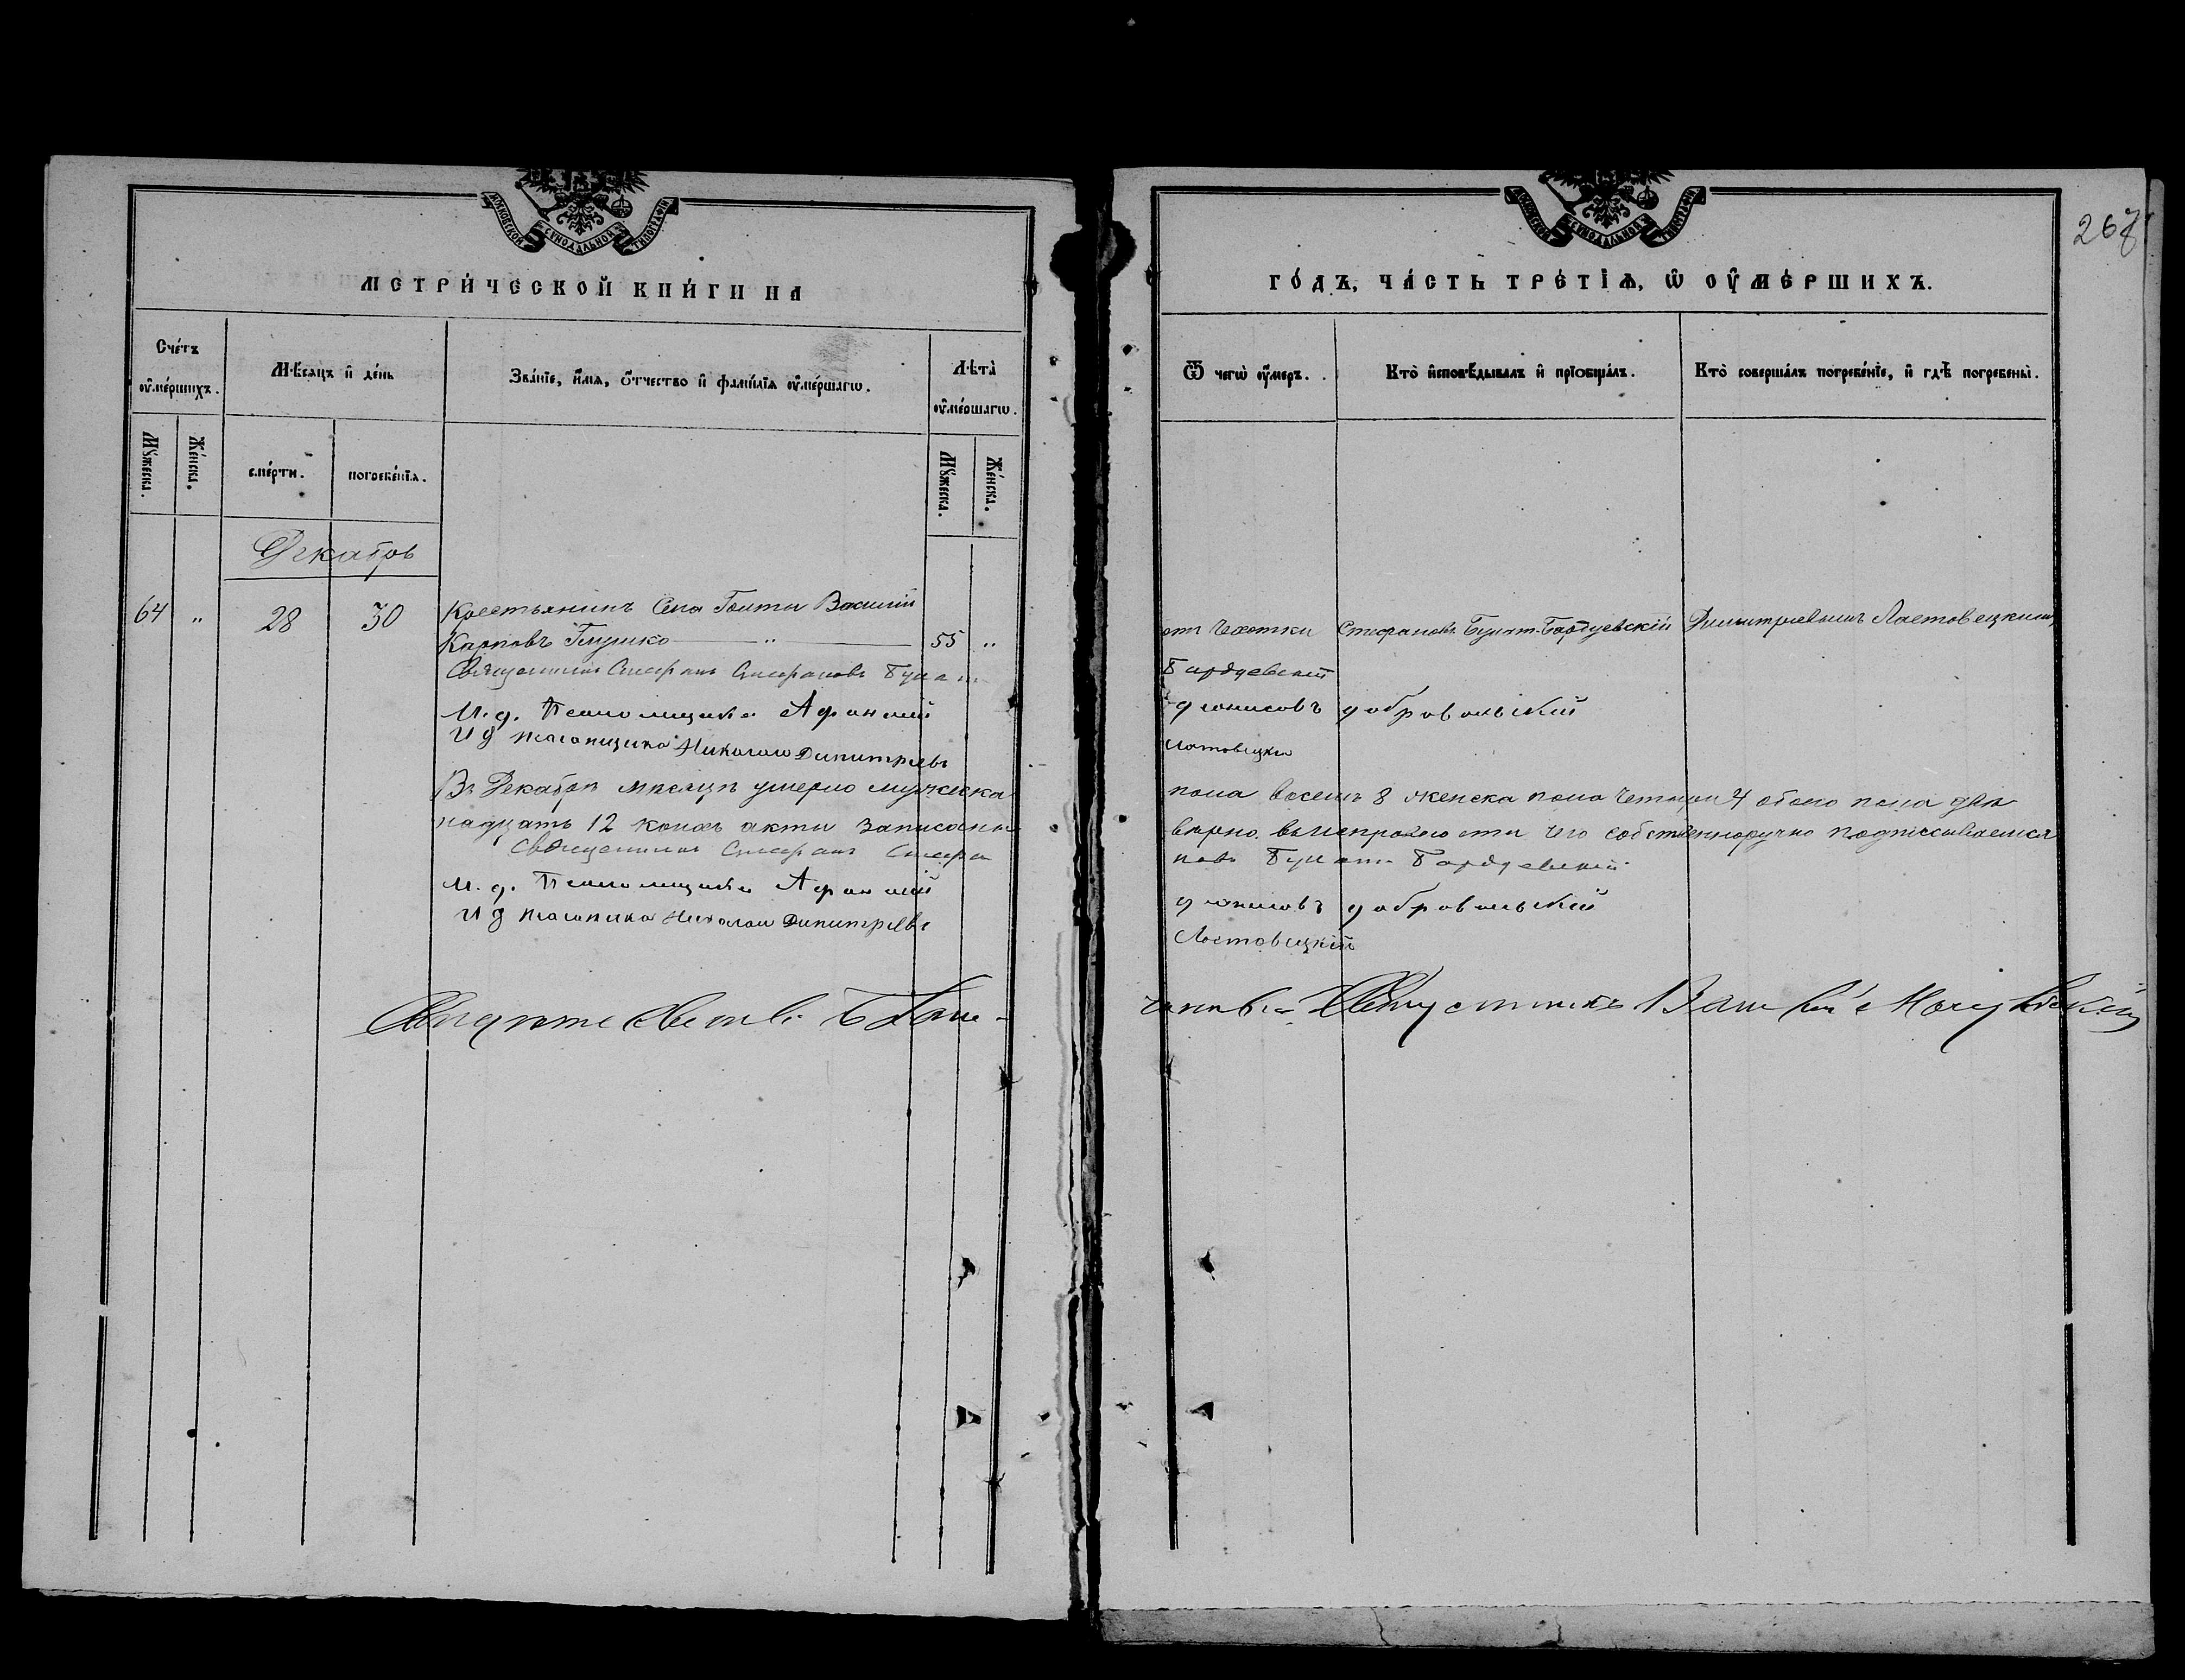 МОСКОВСКОЙ СѴНОДАЛЬНОЙ ТИПОГРАФІИ
МЕТРИ́ЧЕСКОЙ КНИ́ГИ НА
Сче́тъ ѹ҆ме́ршихъ.
Мѣ́сяцъ и҆ де́нь
Зва́нїе, и҆́мѧ, о҆́тчество и҆ фами́лїѧ ѹ҆ме́ршагѡ.
Лѣ́та ѹ҆ме́ршагѡ.
Мꙋ́жеска.
Же́нска.
сме́рти.
погребе́нїѧ.
Мꙋ́жеска.
Же́нска.
Декабрь
64 " 28 30 Крестьянинъ Села Василій
Карповъ Глушко " 55 "
Священникъ Стефанъ Стефановъ Булат
И. д. Псаломщика Афанасій
И д псаломщика Николай Димитріевъ
Въ Декабрѣ мѣсяцѣ умерло мужеска
надцать 12 коихъ акты записаны
Священникъ Стефанъ Стефа
И. д. Псаломщика Афанасій
И д Николай Димитріевъ
МОСКОВСКОЙ СѴНОДАЛЬНОЙ ТИПОГРАФІИ
267
ГО́ДЪ, ЧА́СТЬ ТРЕ́ТЇѦ, Ѡ҆ ОУ҆МЕ́РШИХЪ.
Ѿ чегѡ̀ ѹ҆́меръ.
Кто̀ и҆сповѣ́дывалъ и҆ прїѡбща́лъ.
Кто̀ соверша́лъ погребе́нїе, и҆ гдѣ̀ погребены̀.
отъ Чахотки Стефановъ Булат-Бардуевскій Димитріевымъ Ластовецкимъ
Бардуевскій
Діонисовъ Добровольскій
Ластовецкій
пола восемь 8 женска пола Четыри 4 обоего пола два
вѣрно въ чего собственноручно подписываемся
новъ Булат Бардуевскій
Діонисовъ Добровольскій
Ластовецкій